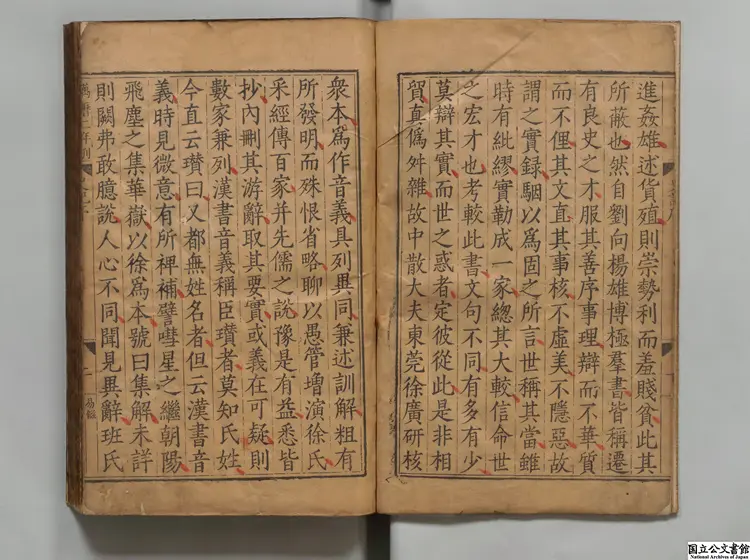 進姦雄述貨殖則崇勢利而羞賤貧此其
所蔽也然自劉向楊雄博極羣書皆稱遷
有良史之才服其善序事理辯而不華質
而不俚其文直其事核不虛美不隱惡故
謂之實録駰以爲固之所言世稱其當雖
時有紕繆實勒成一家緫其大較信命世
之宏才也考較此書文句不同有多有少
莫辯其實而世之惑者定彼從此是非相
貿真僞舛雜故中散大夫東莞徐廣研核
衆本爲作音義具列異同兼述訓解粗有
所發明而殊恨省略聊以愚管增演徐氏
采經傳百家并先儒之說豫是有益悉皆
抄內刪其游辭取其要實或義在可疑則
數家兼列漢書音義稱臣瓚者莫知氏姓
今直云瓚曰又都無姓名者但云漢書音
義時見微意有所裨補譬嘒星之繼朝陽
飛塵之集華嶽以徐爲本號曰集解未詳
則闕弗敢臆說人心不同聞見異辭班氏
国立公文書館
National Archives of Japan